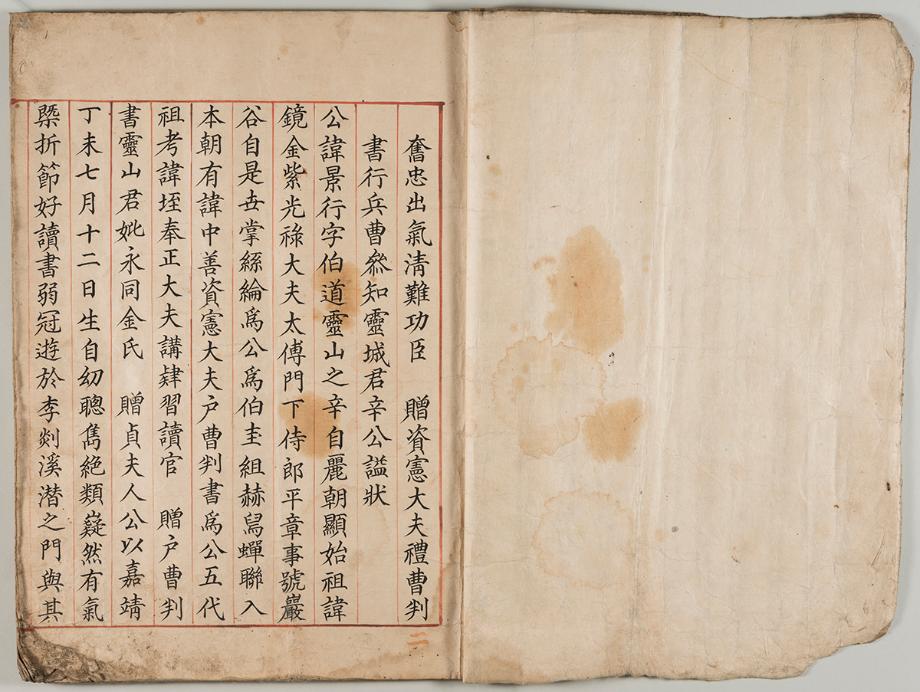 奮忠出氣淸難功臣　贈資憲大夫禮曹判
書行兵曹叅知靈城君辛公謚狀
公諱景行字伯道靈山之辛自麗朝顯始祖諱
鏡金紫光祿大夫太傅門下侍郎平章事號巖
谷自是世掌絲綸爲公爲伯圭組赫舃蟬聯入
本朝有諱中善資憲大夫户曹判書爲公五代
祖考諱垤奉正大夫講肄習讀官　贈户曹判
書靈山君妣永同金氏　贈貞夫人公以嘉靖
丁未七月十二日生自幼聰雋絶類嶷然有氣
槩折節好讀書弱冠遊於李剡溪潜之門與其
二